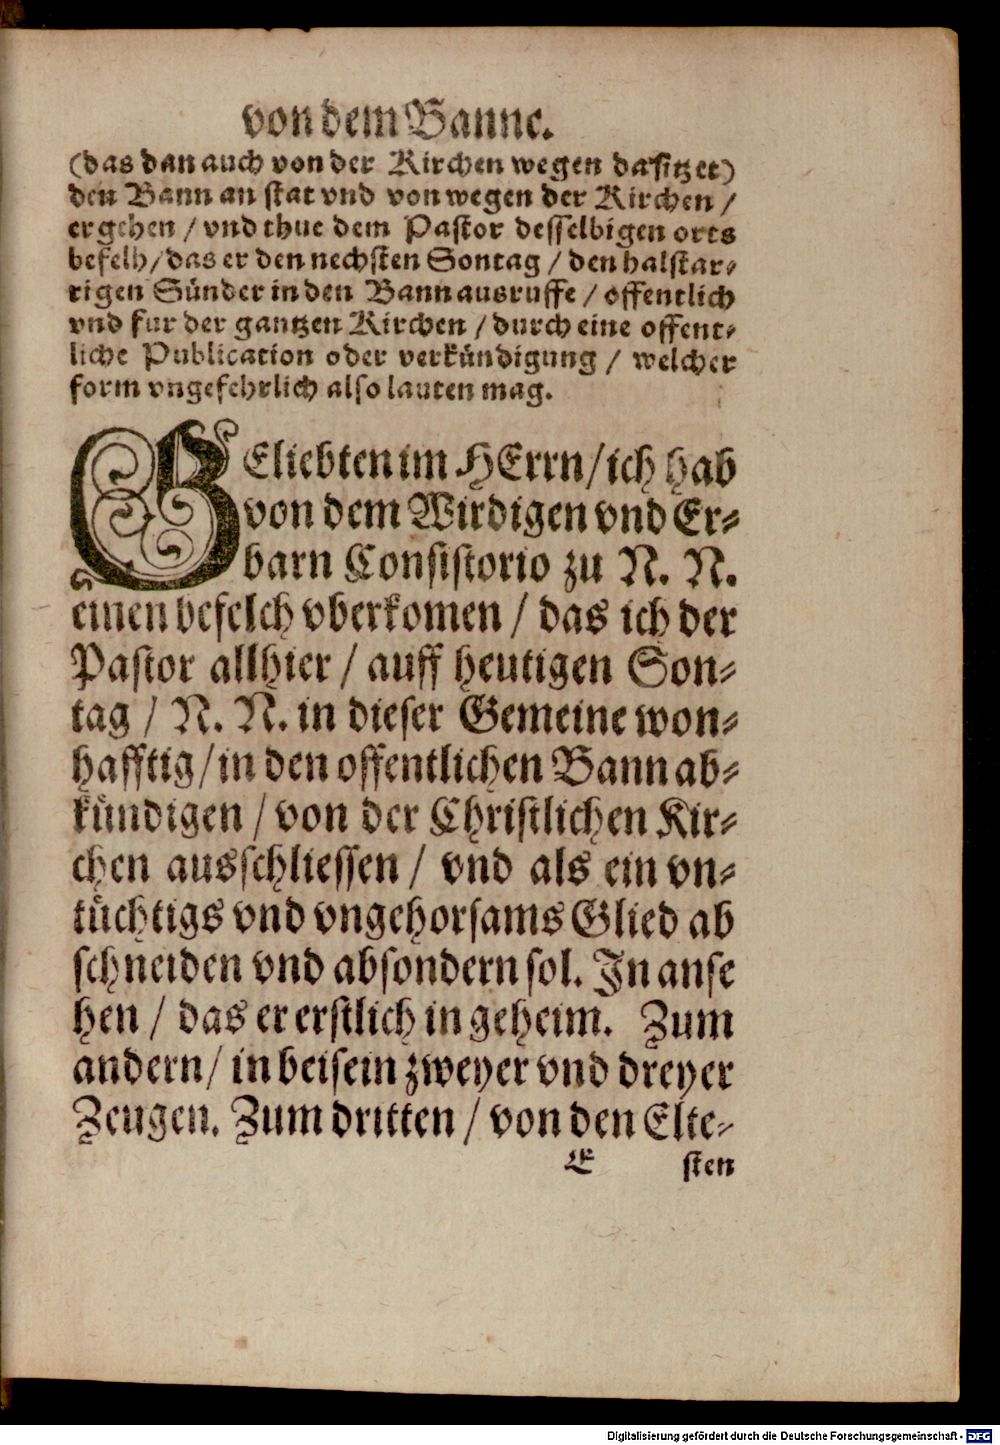 von dem Banne.
(das dan auch von der Kirchen wegen dasitzet)
den Bann an stat vnd von wegen der Kirchen /
ergehen / vnd thue dem Pastor desselbigen orts
befelh / das er den nechsten Sontag / den halstar⸗
rigen Sünder in den Bann ausruffe / offentlich
vnd fur der gantzen Kirchen / durch eine offent⸗
liche Publication oder verkündigung / welcher
form vngefehrlich also lauten mag.
GEliebten im HErrn / ich hab
von dem Wirdigen vnd Er⸗
barn Consistorio zu N. N.
einen befelch vberkomen / das ich der
Pastor allhier / auff heutigen Son⸗
tag / N. N. in dieser Gemeine won⸗
hafftig / in den offentlichen Bann ab⸗
kündigen / von der Christlichen Kir⸗
chen ausschliessen / vnd als ein vn⸗
tüchtigs vnd vngehorsams Glied ab
schneiden vnd absondern sol. In anse
hen / das er erstlich in geheim. Zum
andern / in beisein zweyer vnd dreyer
Zeugen. Zum dritten / von den Elte⸗
E sten
Digitalisierung gefördert durch die Deutsche Forschungsgemeinschaft - DFG